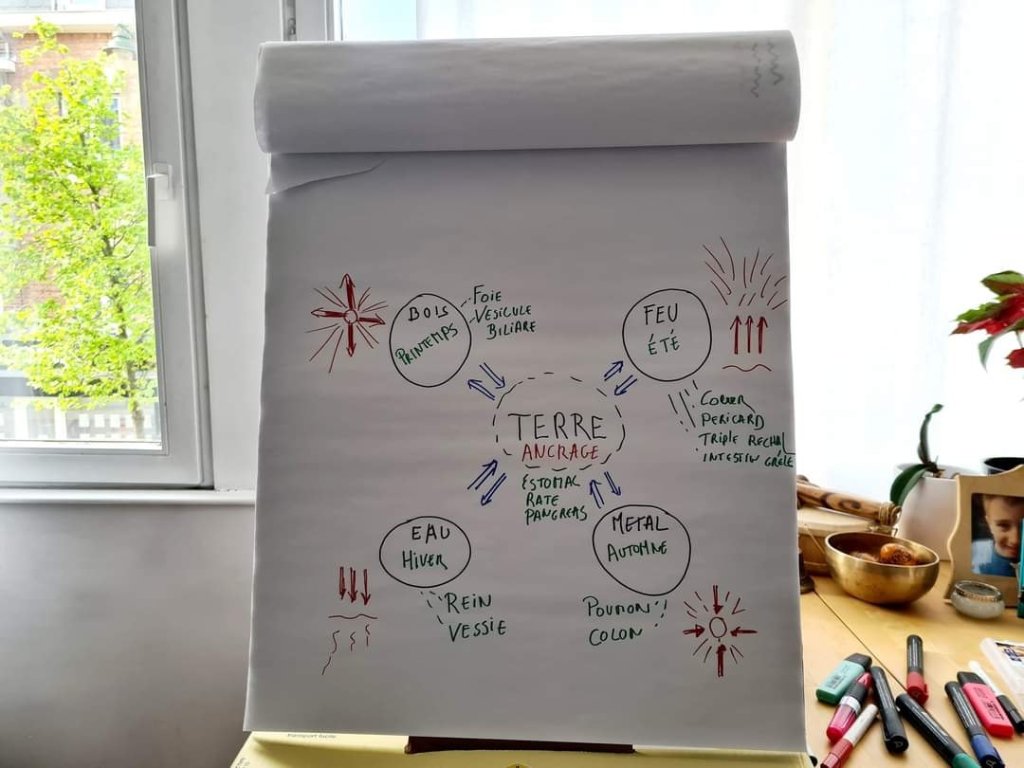 BOIS
PRINTEMPS
FOIE
VESICULE
BILIARE
FEU
ÉTÉ
COEUR
PERICARD
TRIPLE RECHAL
INTESTIN GRÊLE
TERRE
ANCRAGE
ESTOMAC
RATE
PANCREAS
EAU
HIVER
REIN
VESSIE
METAL
AUTOMNE
POUMON
COLON